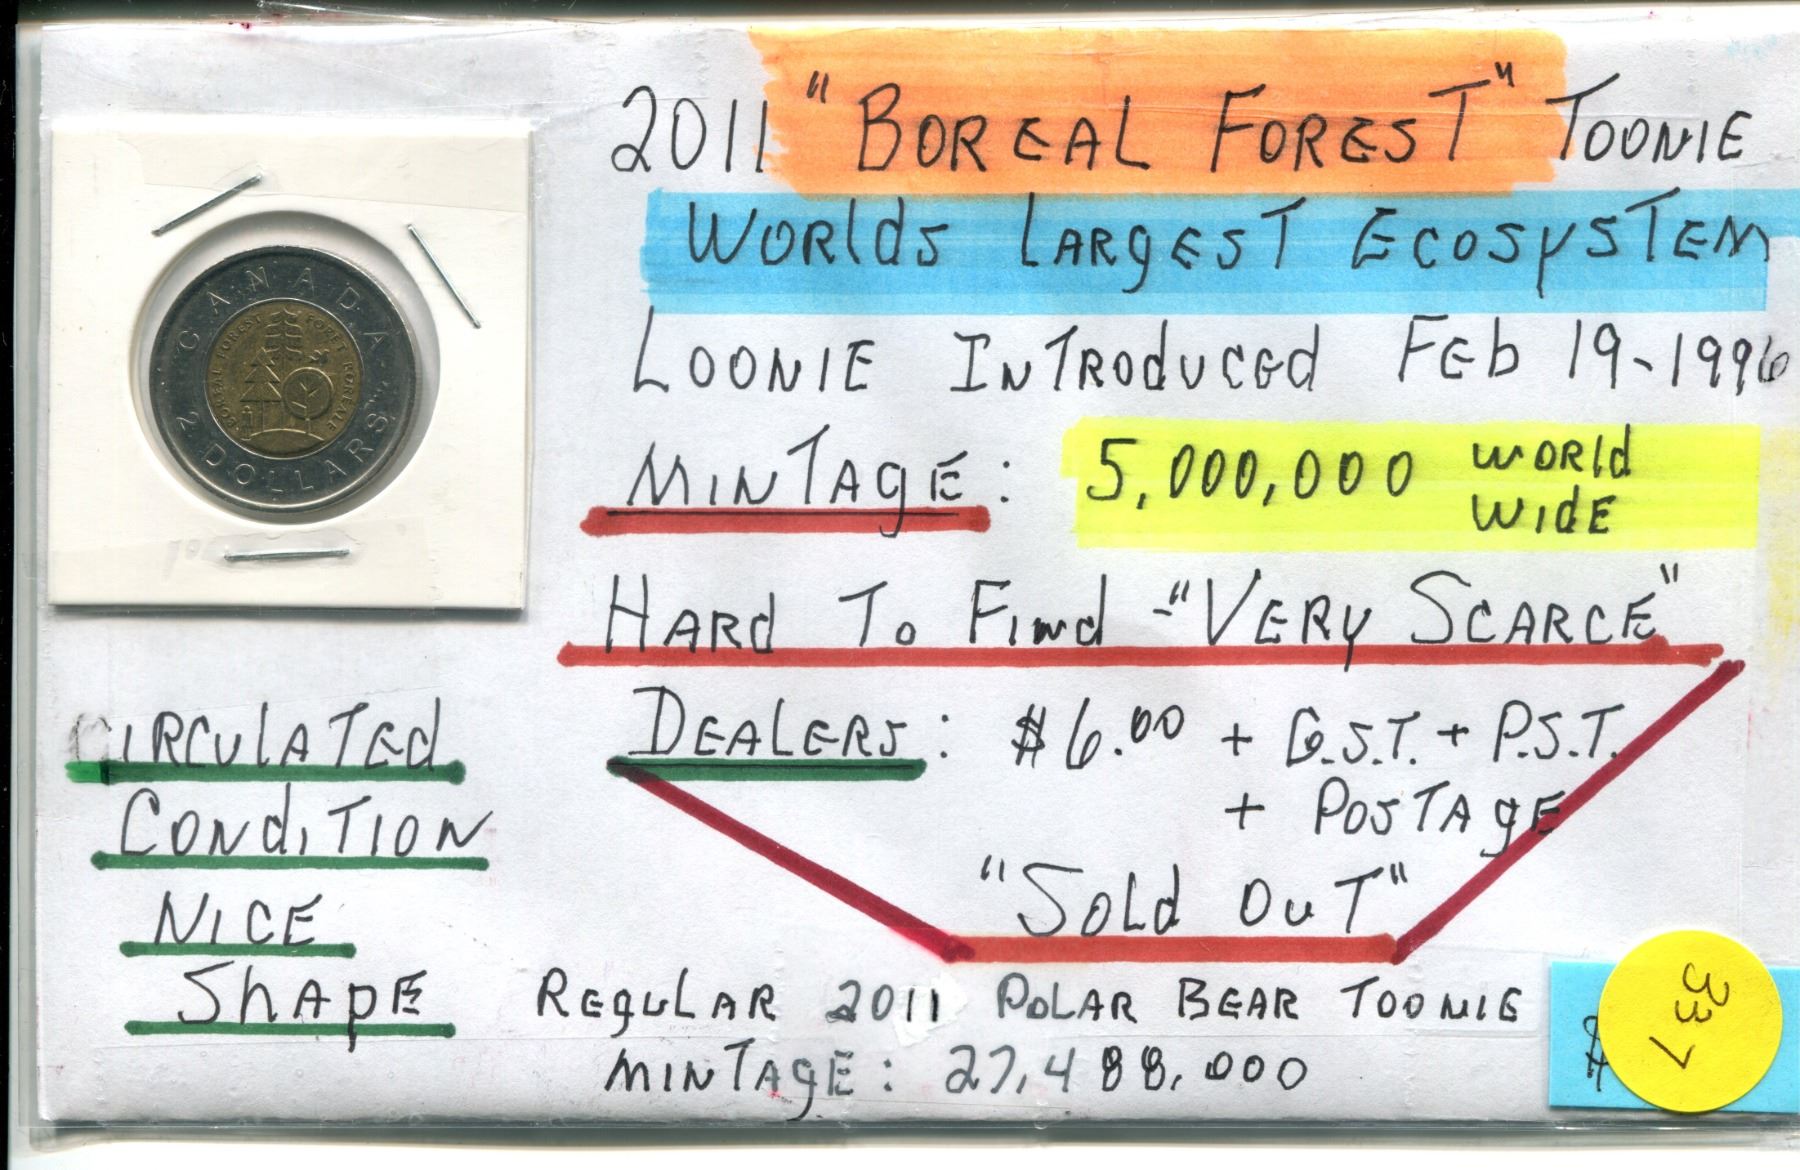 2011 "BOREAL FOREST" TOONIE
WORLdS LARgEST ECOSYSTEM
LOONIE INTROduCEd FEb 19-1996
MINTAgE: 5,000,000 WORLd
WIdE
HARd TO FINd - "VERY SCARCE"
DEALERS: $6.00 + G.S.T. + P.S.T.
+ POSTAgE
"SOLd OuT"
REguLAR 2011 POLAR BEAR TOONIE
MINTAgE: 27,488,000
CIRCuLATEd
CONdiTION
NICE
ShApE
CANADA
BOREAL FOREST FORÊT BORÉALE
2 DOLLARS
$
337